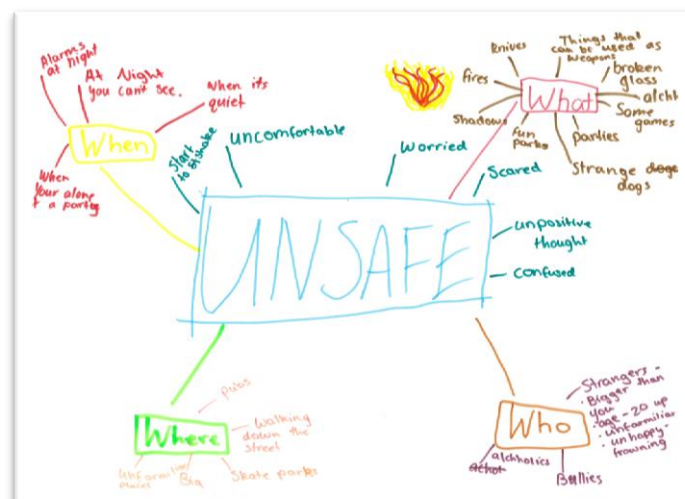 Alarms
at night
At Night
you can't see.
When its
quiet
When
When
your alone
Start
to
shake
uncomfortable
Worried
Scared
unpositive
thought
confused
UNSAFE
Knives
Things that
can be used as
weapons
broken
glass
fires
What
Some
games
Shadows
fun
parks
parties
Strange
dogs
pubs
Where
Walking
down the
street
places
Skate parks
Who
Strangers -
Bigger than
you
age - 20 up
unformiliar
unhappy -
frowning
alchholics
Bullies